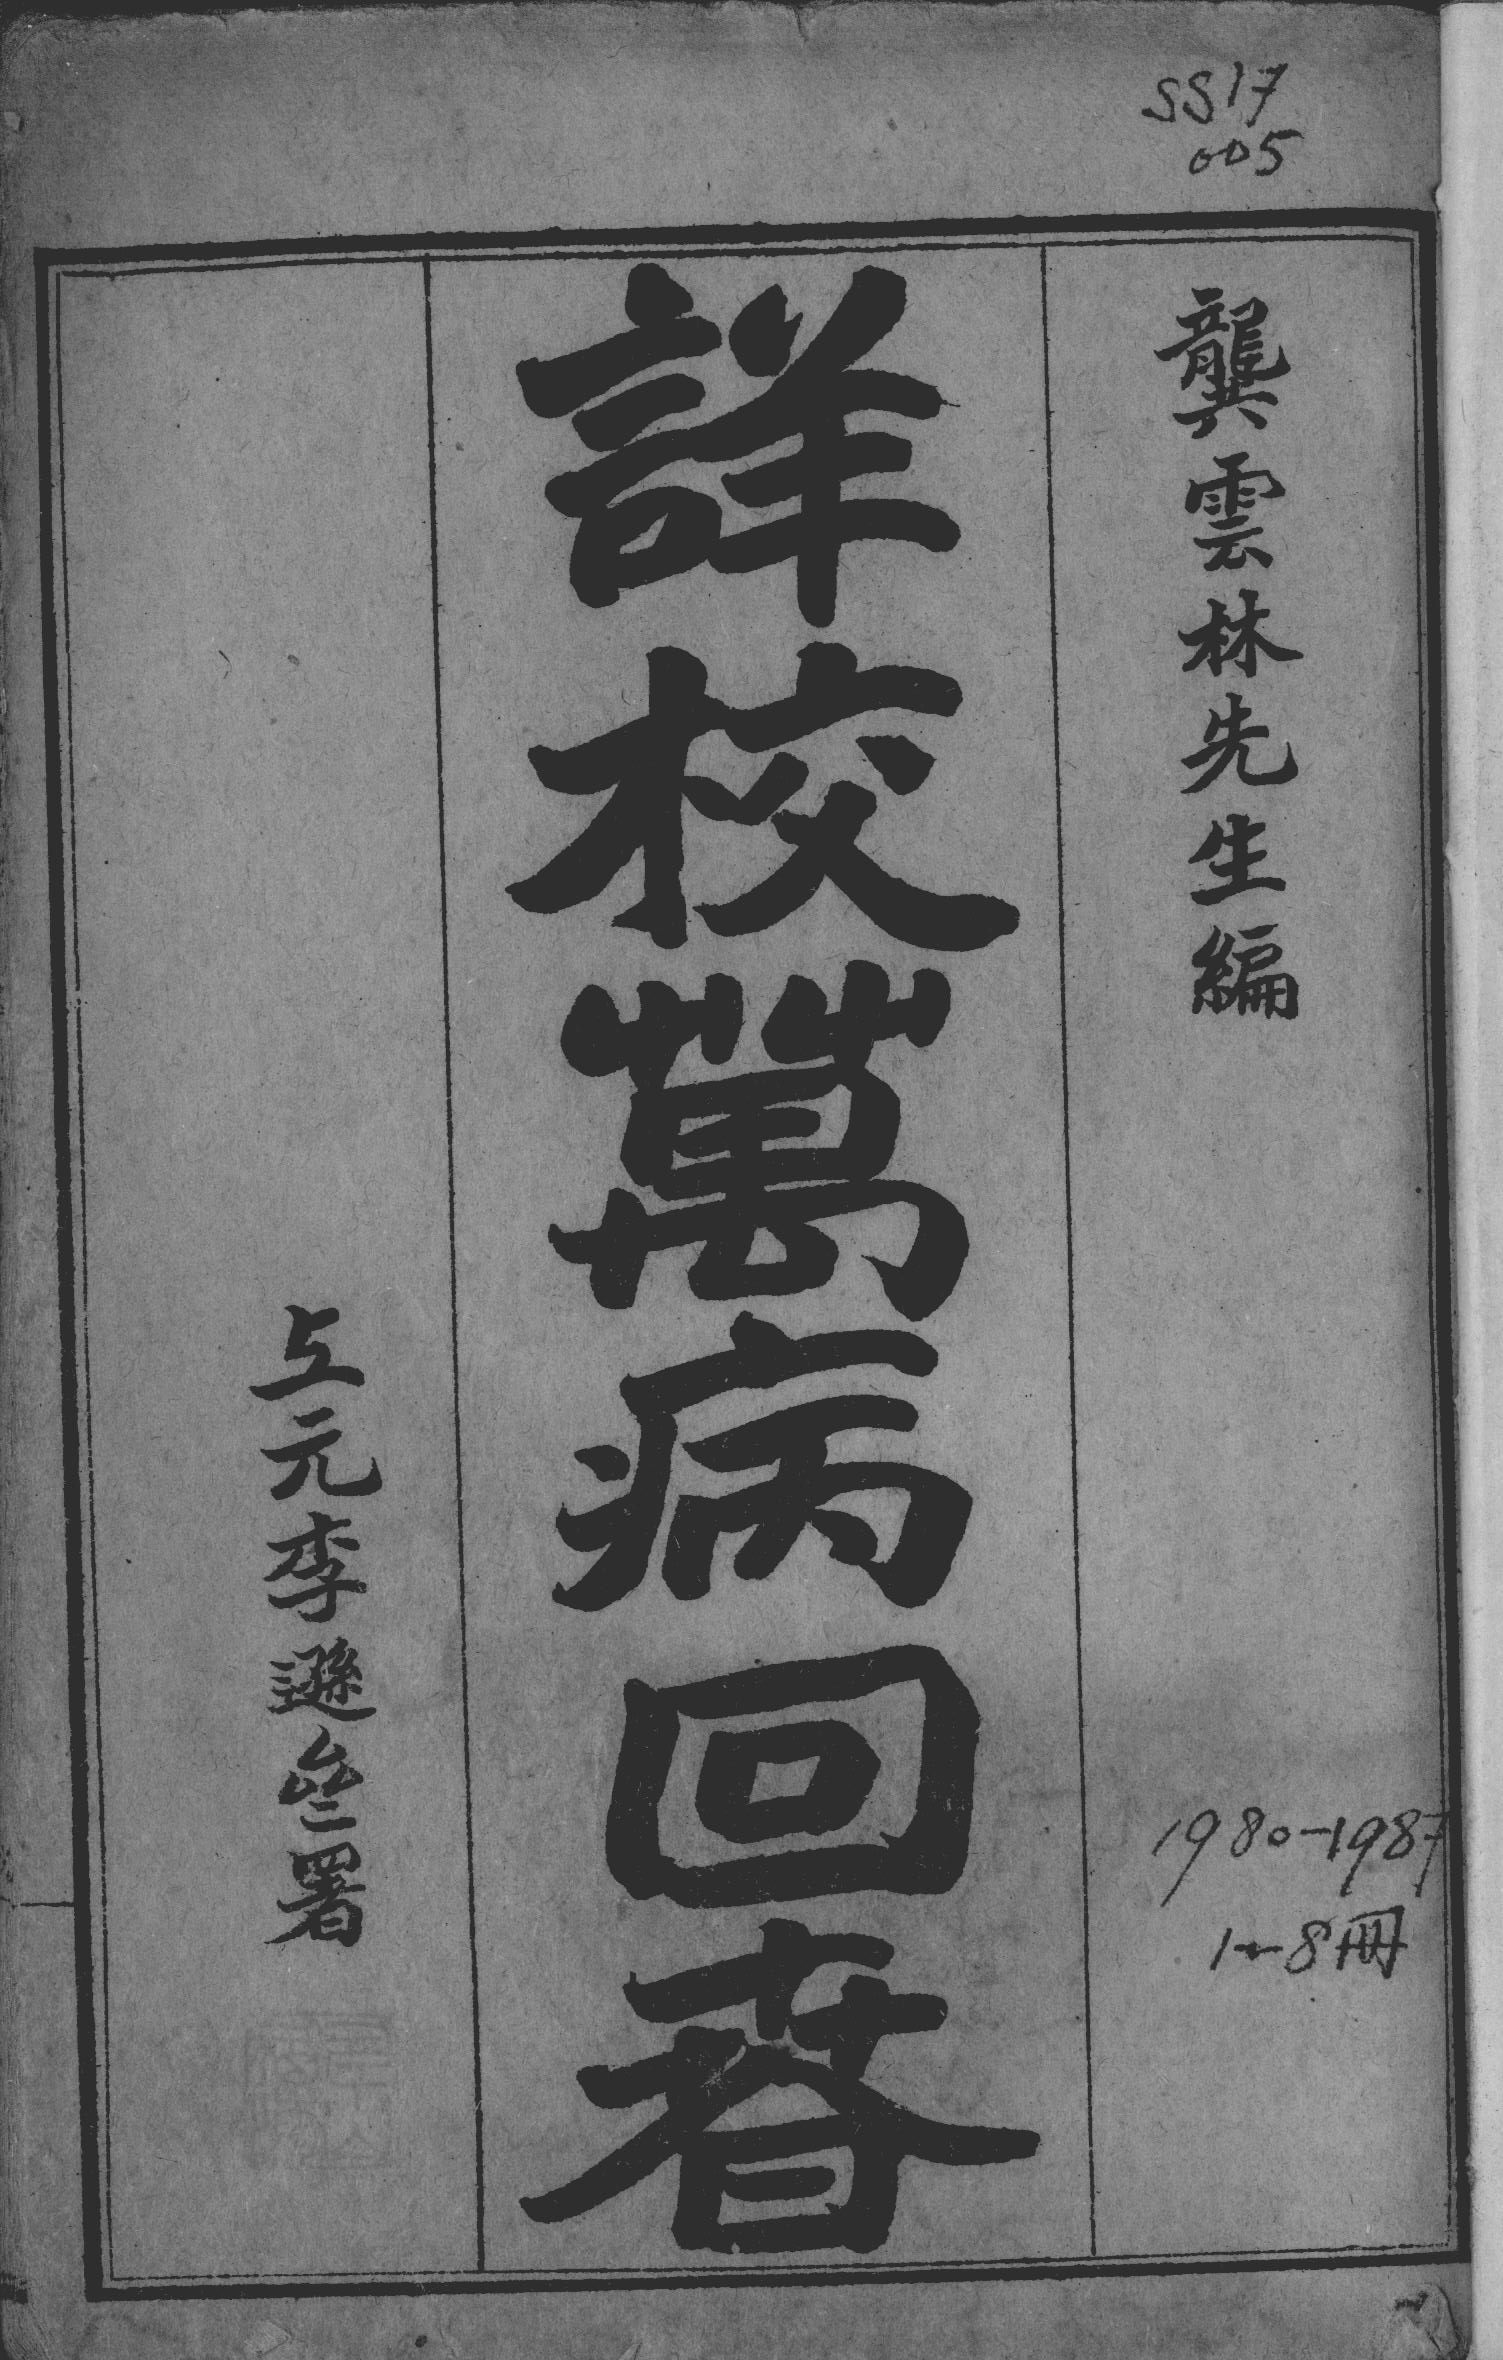 SS17
005
龔雲林先生編
詳校萬病回春
上元李遜叄署
1980-1987
1-8冊